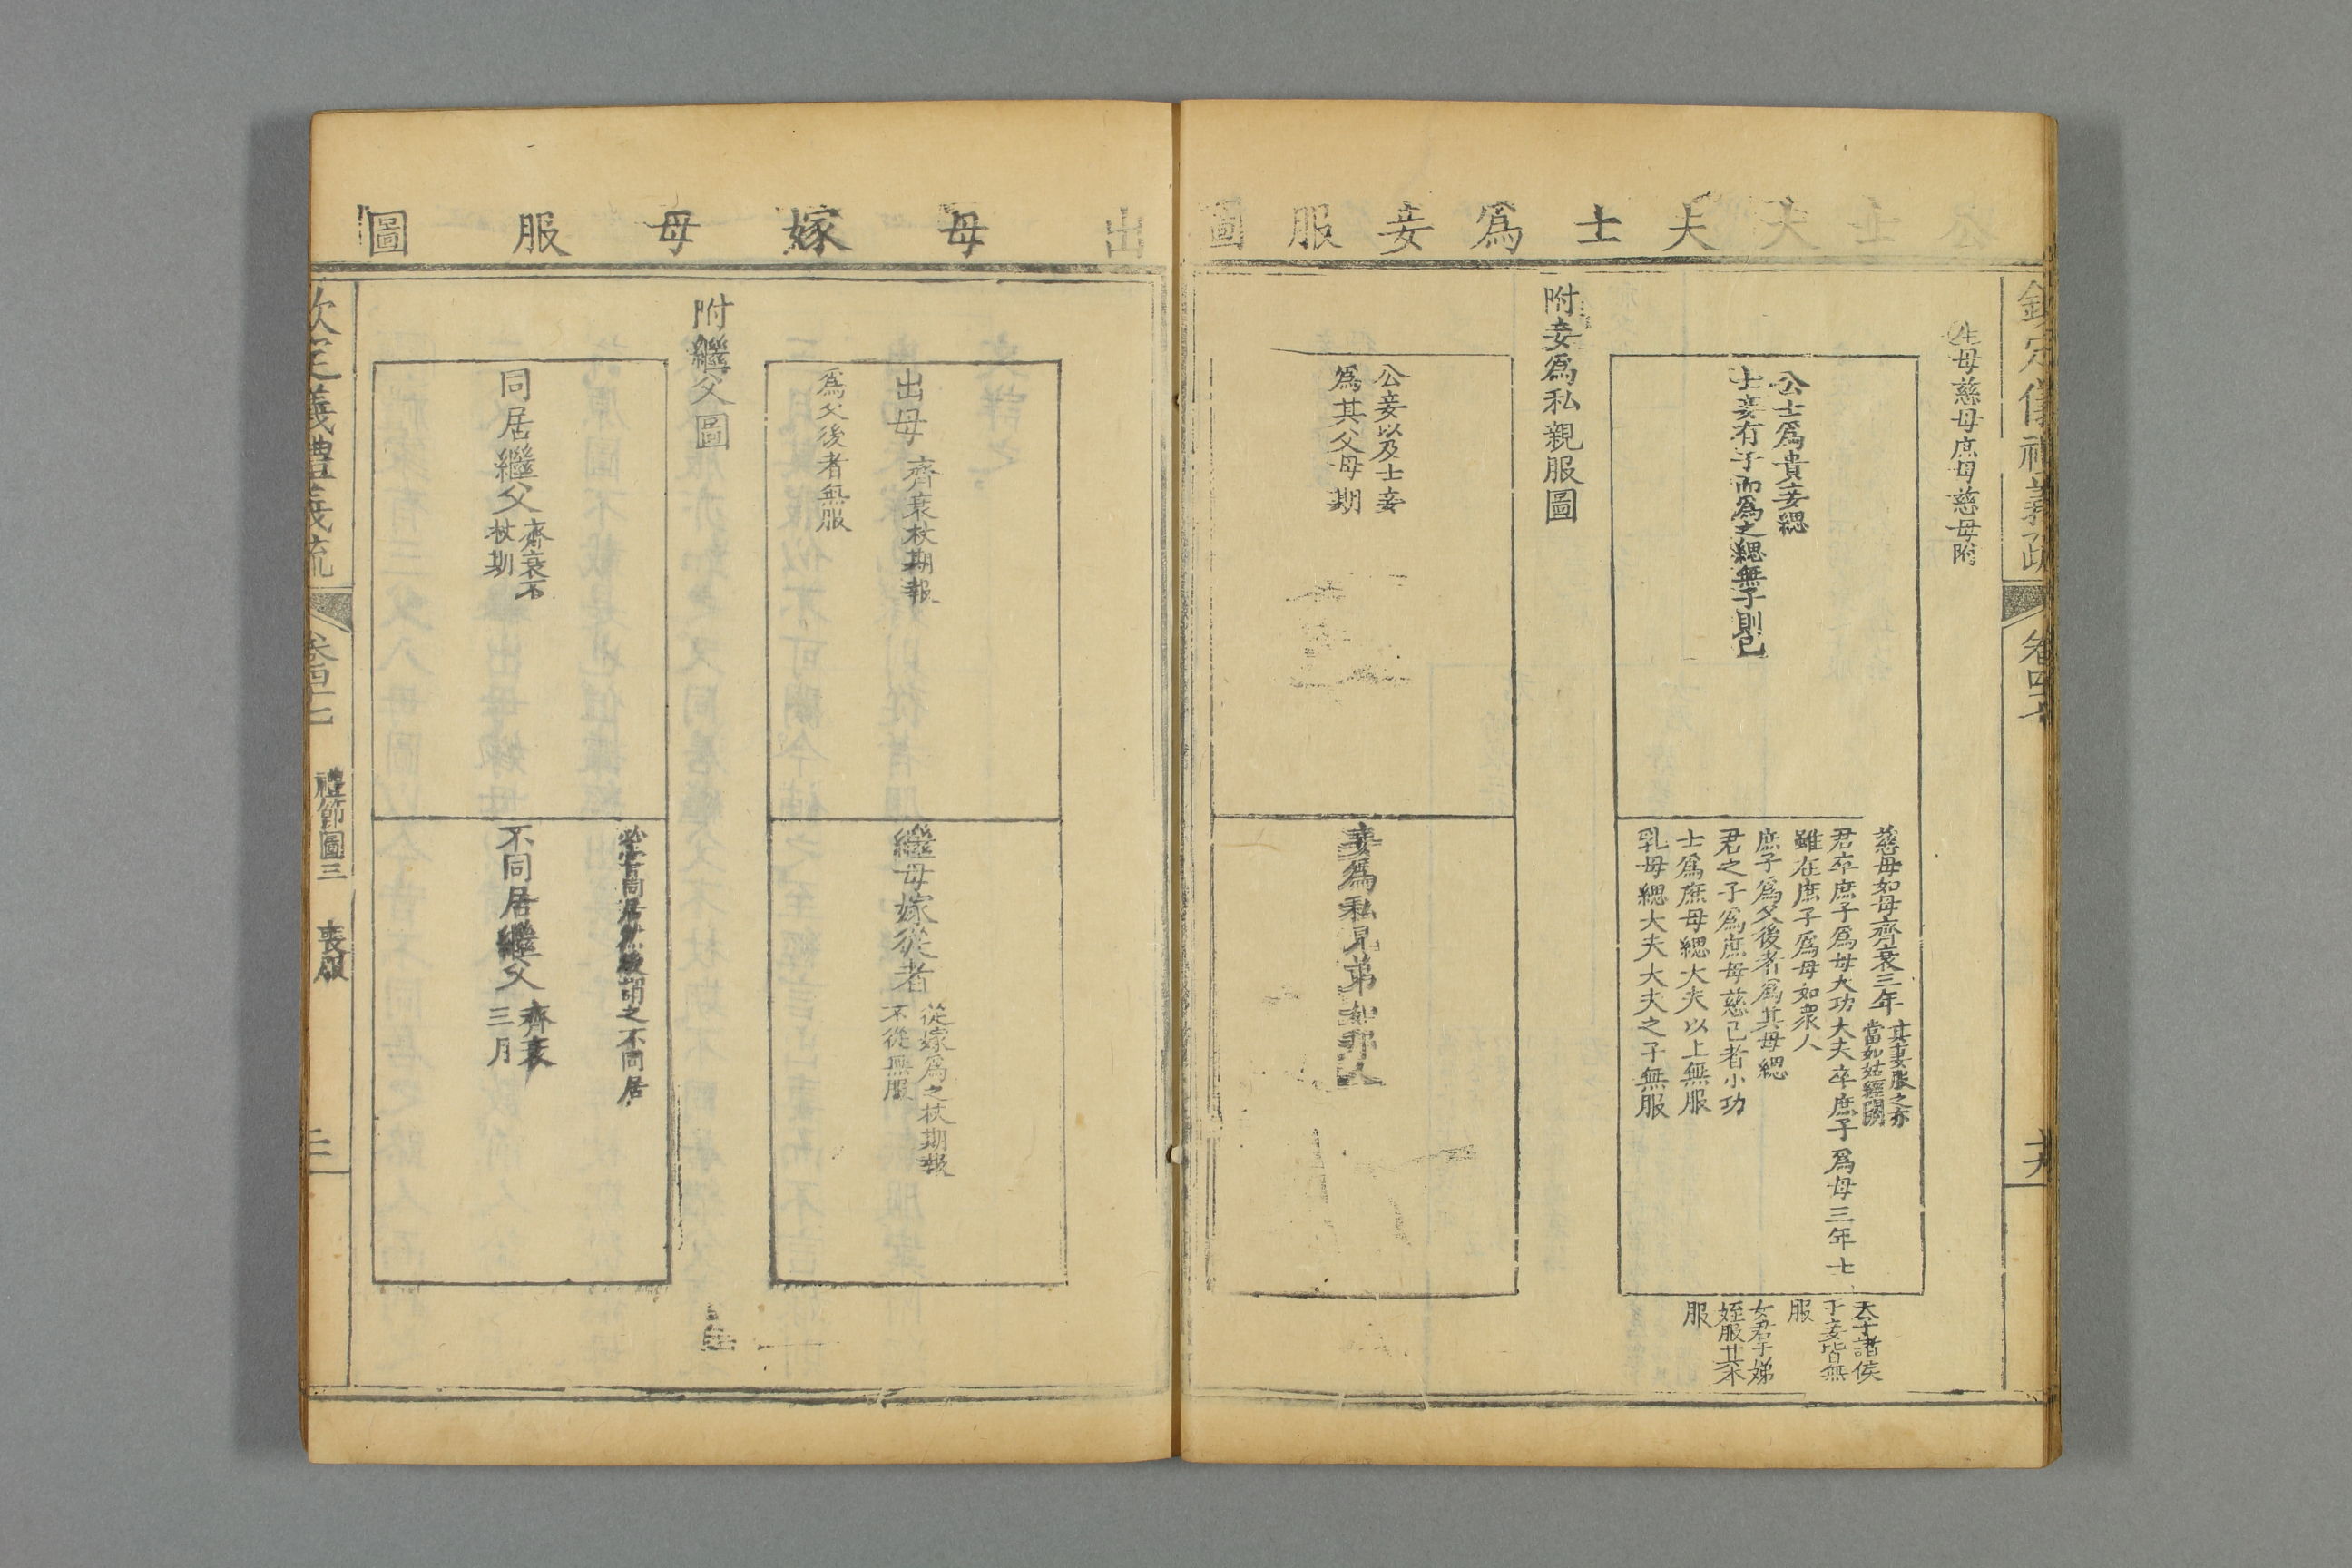 公士大夫士爲妾服圖
欽定儀禮義疏
卷四十七
生母慈母庶母慈母附
公士爲貴妾緦
士妾有子而爲之緦無子則已
慈母如母齊衰三年
其妻服之亦
當如姑經闕
君卒庶子爲母大功大夫卒庶子爲母三年士
雖在庶子爲母如衆人
庶子爲父後者爲其母緦
君之子爲庶母慈己者小功
士爲庶母緦大夫以上無服
乳母緦大夫大夫之子無服
天子諸侯
于妾皆無
服
女君于娣
姪服其本
服
附妾爲私親服圖
公妾以及士妾
爲其父母期
妾爲私兄弟如邦人
出母嫁母服圖
出母
齊衰杖期報
爲父後者無服
繼母嫁從者
從嫁爲之杖期報
不從無服
附繼父圖
同居繼父
齊衰不
杖期
必嘗同居然後謂之不同居
不同居繼父
齊衰
三月
欽定儀禮義疏
卷四十七
禮節圖三
喪服